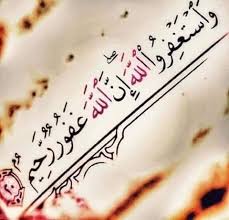 وَاسْتَغْفِرُوا اللَّهَ إِنَّ اللَّهَ غَفُورٌ رَّحِيمٌ